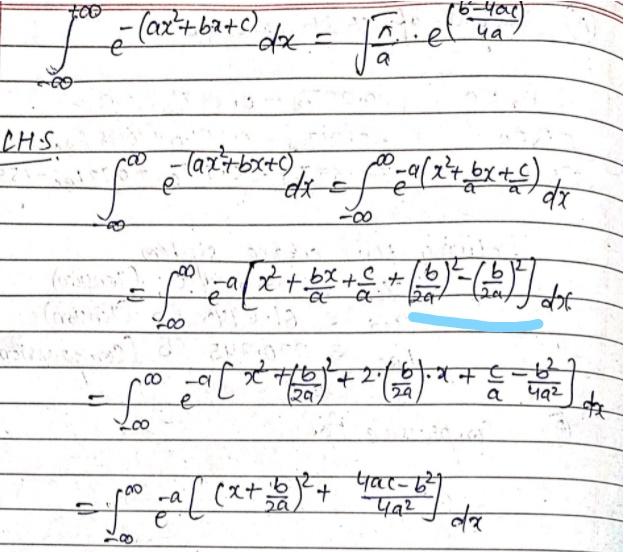 ∫_{-∞}^{+∞} e^{-(ax²+bx+c)} dx = √(π/a) · e^{(b-4ac/4a)}
LHS.
∫_{-∞}^{∞} e^{-(ax²+bx+c)} dx = ∫_{-∞}^{∞} e^{-a(x²+bx/a+c/a)} dx
= ∫_{-∞}^{∞} e^{-a[x²+bx/a+c/a+(b/2a)²-(b/2a)²]} dx
= ∫_{-∞}^{∞} e^{-a[x²+(b/2a)²+2·(b/2a)·x+c/a-b²/4a²]} dx
= ∫_{-∞}^{∞} e^{-a[(x+b/2a)²+4ac-b²/4a²]} dx